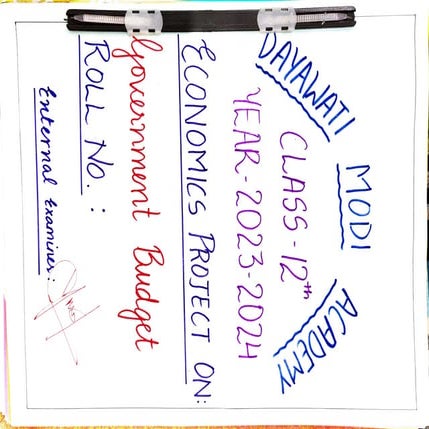 DAYAWATI MODI ACADEMY
CLASS - 12th
YEAR - 2023-2024
ECONOMICS PROJECT ON:
Government Budget
ROLL NO. :
External Examiner: